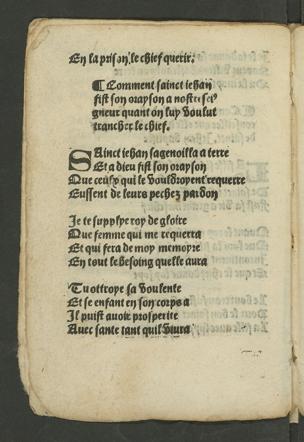 En la prison le chief querir.
¶ Comment sainct iehan
fist son orayson a nostre sei
gneur quant on luy voulut
trancher le chief.
SAinct iehan sagenoilla a terre
Et a dieu fist son orayson
Que ceulx qui le vouldroyent requerre
Eussent de leurs pechez pardon
Je te supplye roy de gloire
Que femme qui me requerra
Et qui fera de moy memoyre
En tout le besoing quelle aura
Tu ottroye sa voulente
Et se enfant en son corps a
Il puist auoir prosperite
Auec sante tant quil viura